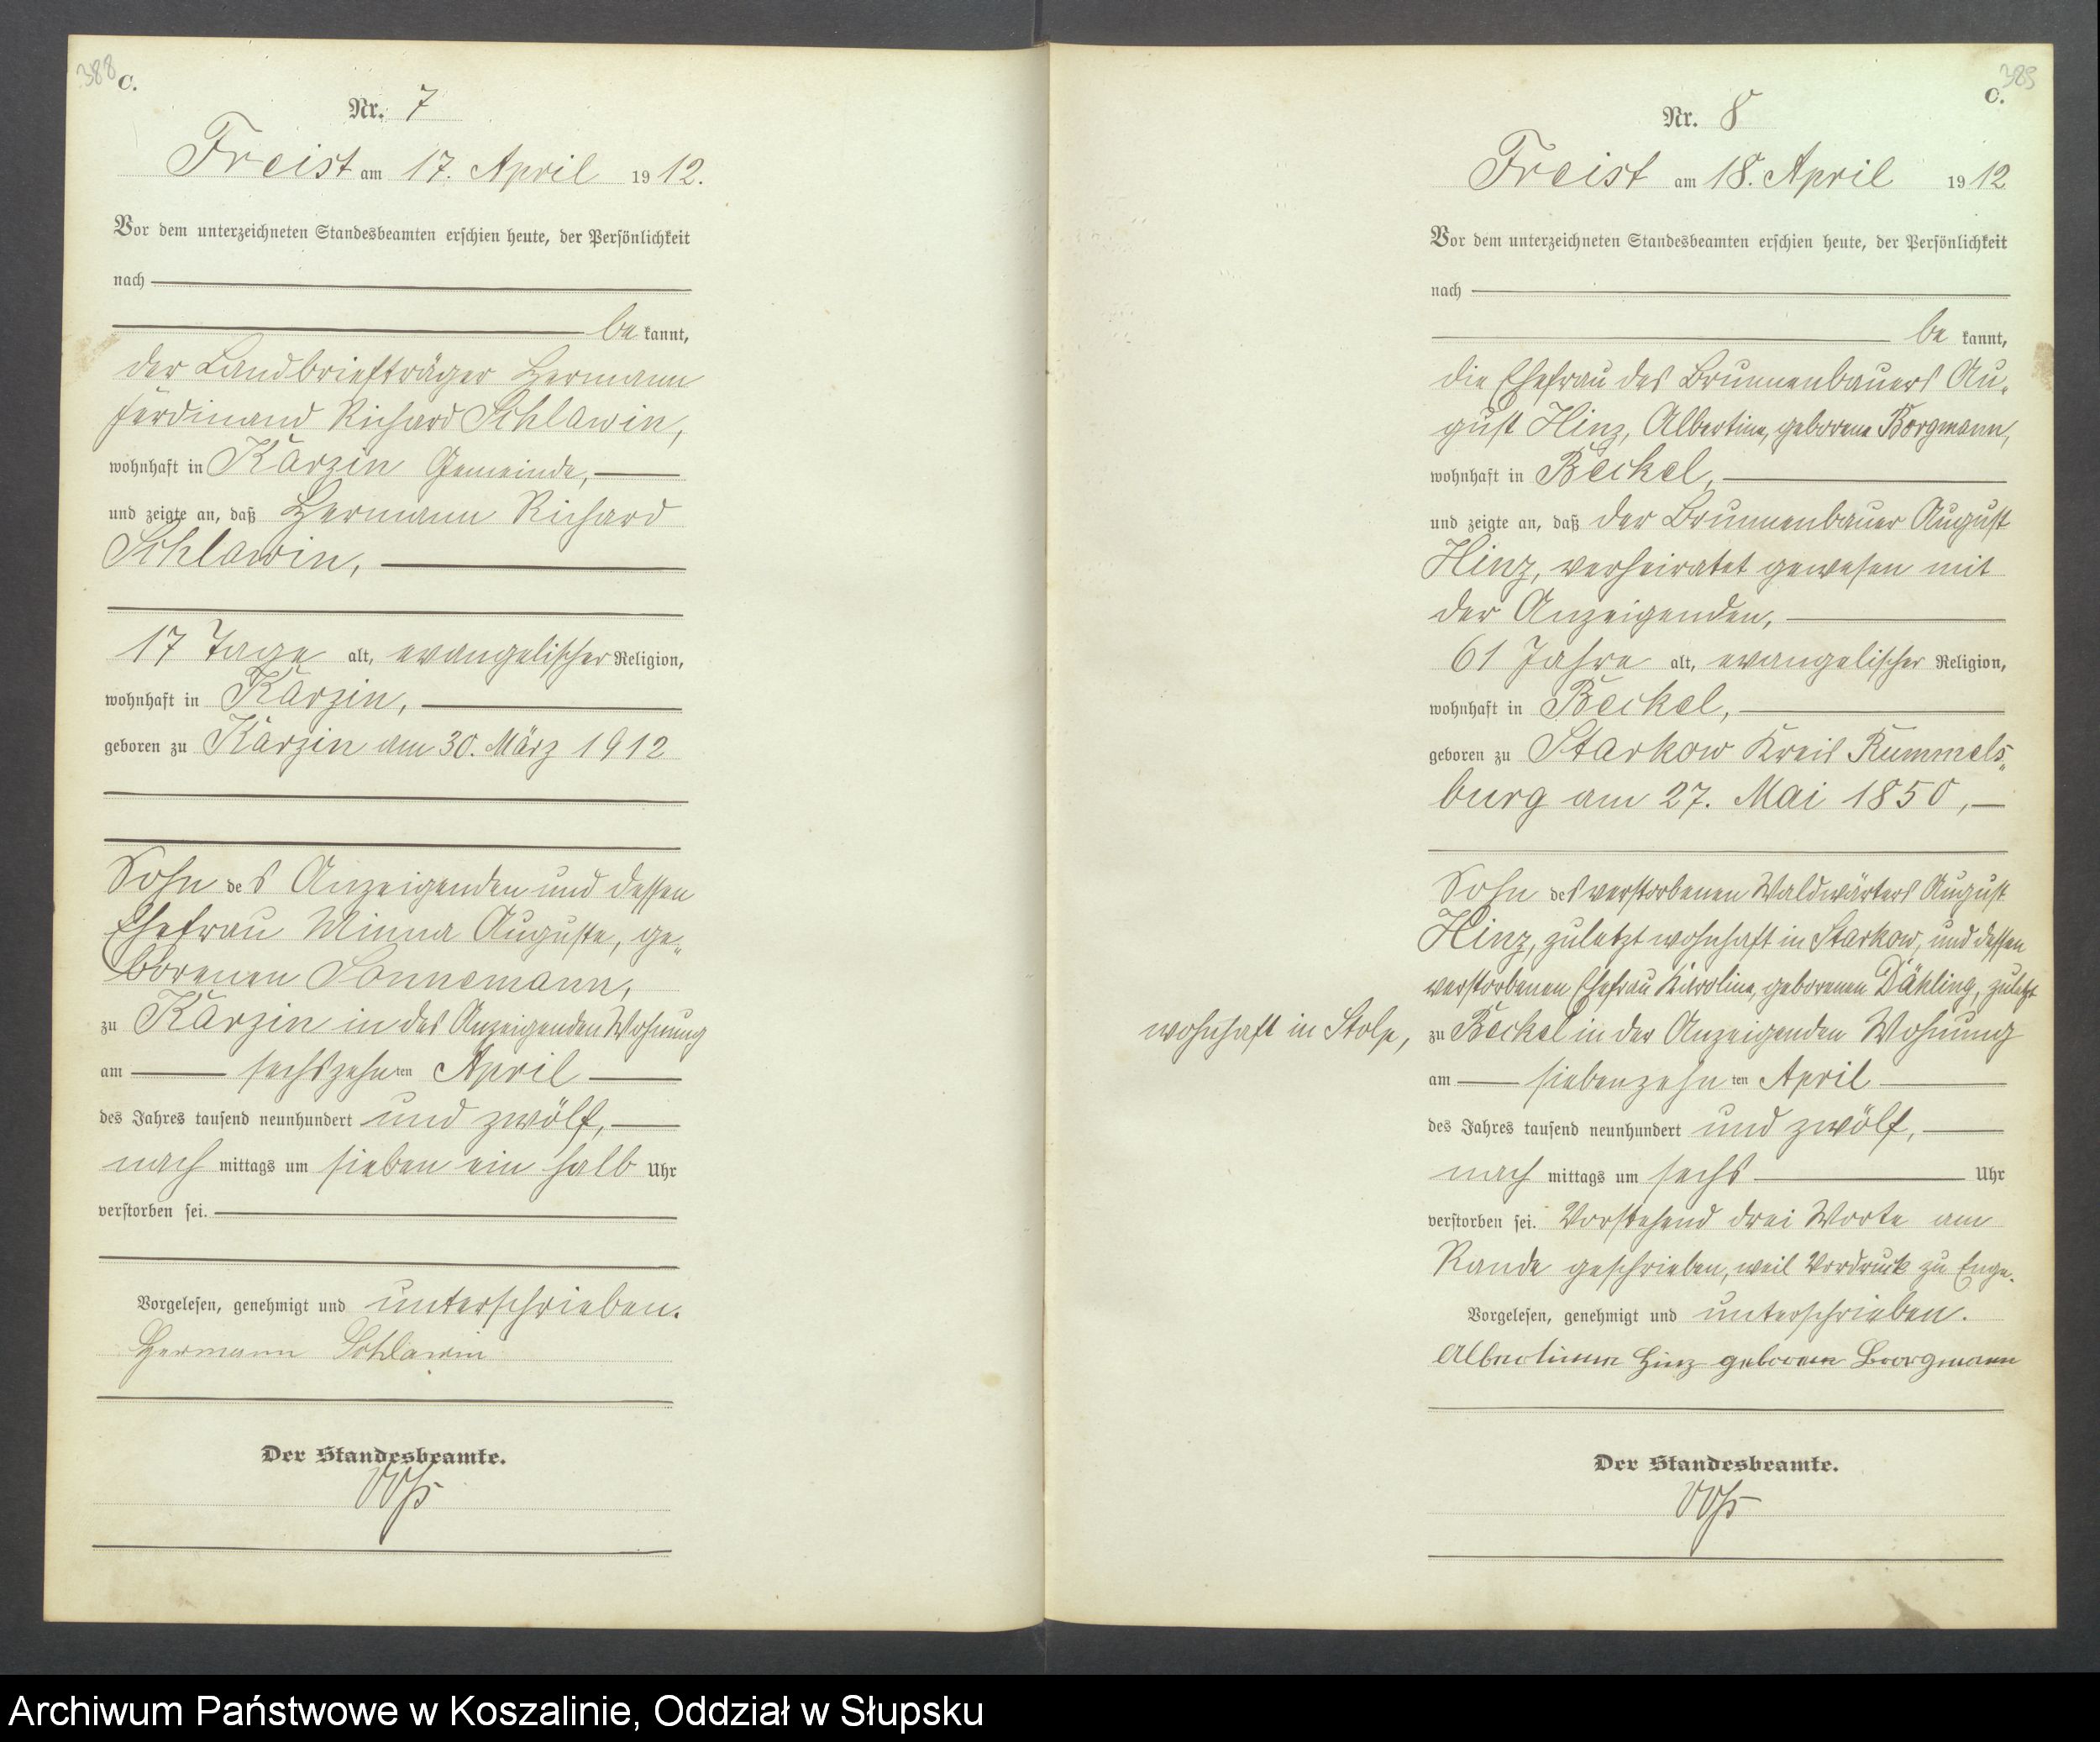 388 C.
Nr. 7
Freist am 17. April 1912.
Vor dem unterzeichneten Standesbeamten erschien heute, der Persönlichkeit
nach
be kannt,
der Landbriefträger Hermann
Ferdinand Richard Schlawin,
wohnhaft in Karzin Gemeinde,
und zeigte an, daß Hermann Richard
Schlawin,
17 Tage alt, evangelischer Religion,
wohnhaft in Karzin,
geboren zu Karzin am 30. März 1912
Sohn des Anzeigenden und dessen
Ehefrau Minna Auguste, ge„
borenen Sonnemann,
zu Karzin in des Anzeigenden Wohnung
am sechszehnten April
des Jahres tausend neunhundert und zwölf,
nach mittags um sieben ein halb Uhr
verstorben sei.
Vorgelesen, genehmigt und unterschrieben.
Hermann Schlawin
Der Standesbeamte.
389
C.
Nr. 8
Freist am 18. April 1912
Vor dem unterzeichneten Standesbeamten erschien heute, der Persönlichkeit
nach
be kannt,
die Ehefrau des Brunnenbauers Au„
gust Hinz, Albertine, geborene Borgmann,
wohnhaft in Beckel,
und zeigte an, daß der Brunnenbauer August
Hinz, verheiratet gewesen mit
der Anzeigenden,
61 Jahre alt, evangelischer Religion,
wohnhaft in Beckel,
geboren zu Starkow Kreis Rummels„
burg am 27. Mai 1850,
Sohn des verstorbenen Waldwärters August
Hinz, zuletzt wohnhaft in Starkow, und dessen
verstorbenen Ehefrau Karoline, geborenen Dähling, zuletzt
wohnhaft in Stolp,
zu Beckel in der Anzeigenden Wohnung
am siebenzehnten April
des Jahres tausend neunhundert und zwölf,
nach mittags um sechs Uhr
verstorben sei. Vorstehend drei Worte am
Rande geschrieben, weil Vordruck zu Enge.
Vorgelesen, genehmigt und unterschrieben.
Albertine Hinz geborene Borgmann
Der Standesbeamte.
Archiwum Państwowe w Koszalinie, Oddział w Słupsku